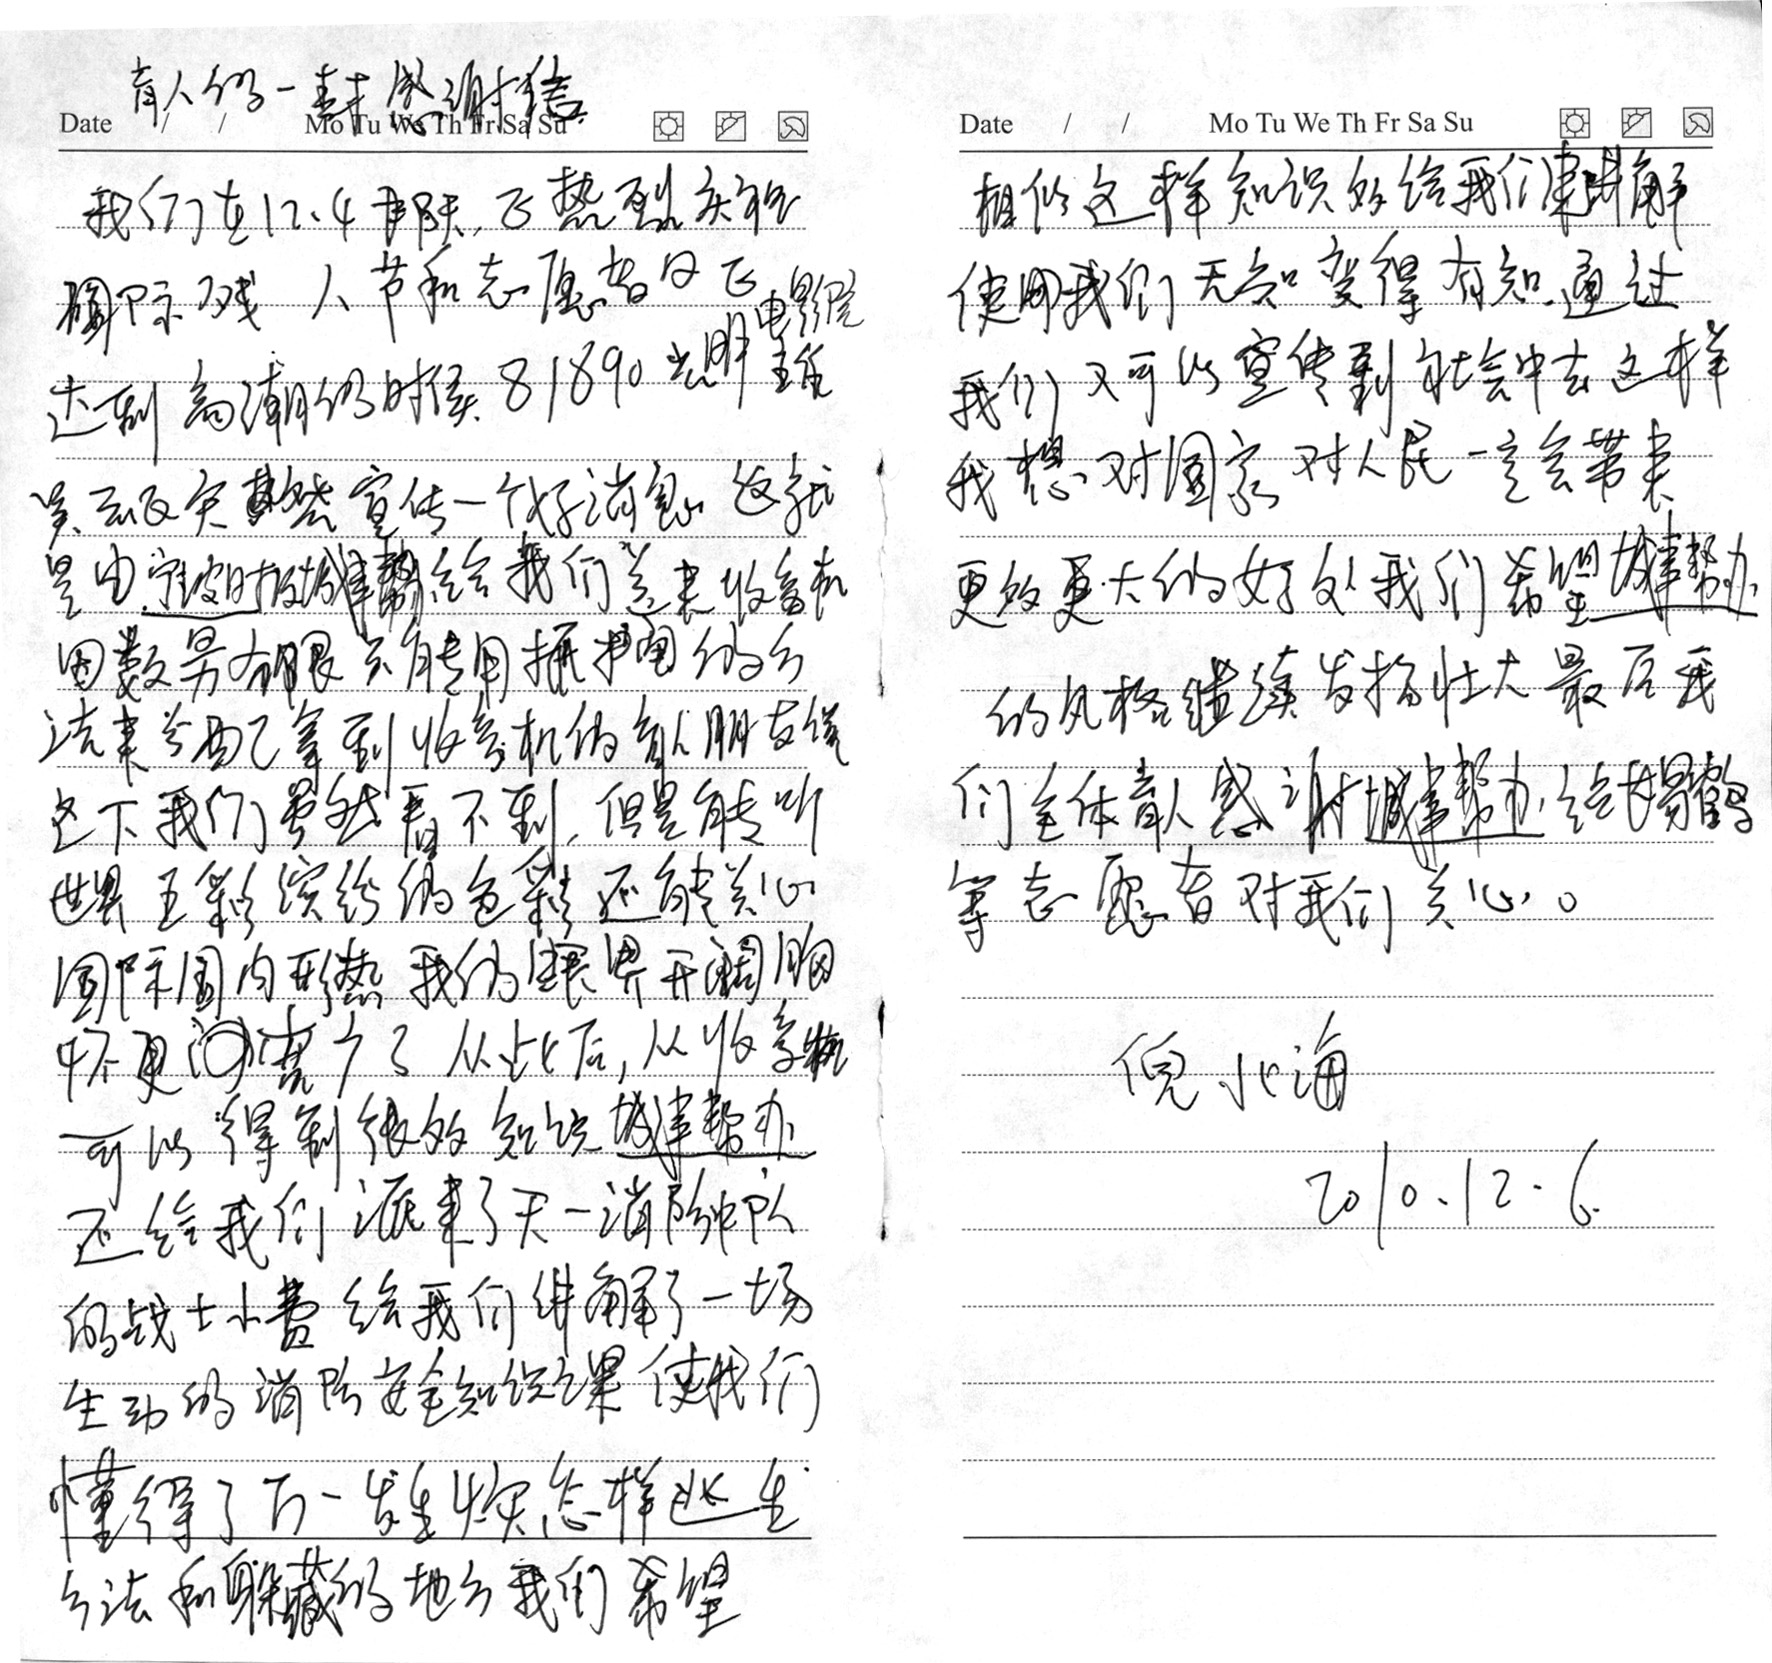 盲人的一封感谢信
Date / / Mo Tu We Th Fr Sa Su
我们在12.4 正热烈庆祝
国际残 人节和志愿者日正
达到高潮的时候 81890光明电影院
吴 突然宣传一个好消息 这就
是由宁波时报城事帮办给我们送来收音机
因数另有限只能用摇 的方
法来分配已拿到收音机的盲人朋友说
这下我们虽然看不到,但是能听
世界五彩缤纷的色彩 还能关心
国际国内形势 我的眼界开阔胸
怀更宽广了 从此后,从收音机
可以得到很多知识 城事帮办
还给我们派来了天一消防中队
的战士小费 给我们讲解了一场
生动的消防安全知识之课 使我们
懂得了万一发生火灾怎样逃生
方法和躲藏的地方我们希望
Date / / Mo Tu We Th Fr Sa Su
相似这样知识多给我们来讲解
使用我们无知变得有知 通过
我们又可以宣传到社会中去这样
我想对国家对人民一定会带来
更多更大的好处我们希望城事帮办
的风格继续发扬壮大 最后我
们全体盲人感谢城事帮办 给 杨鹤
等志愿者对我们关心。
倪水海
2010.12.6.